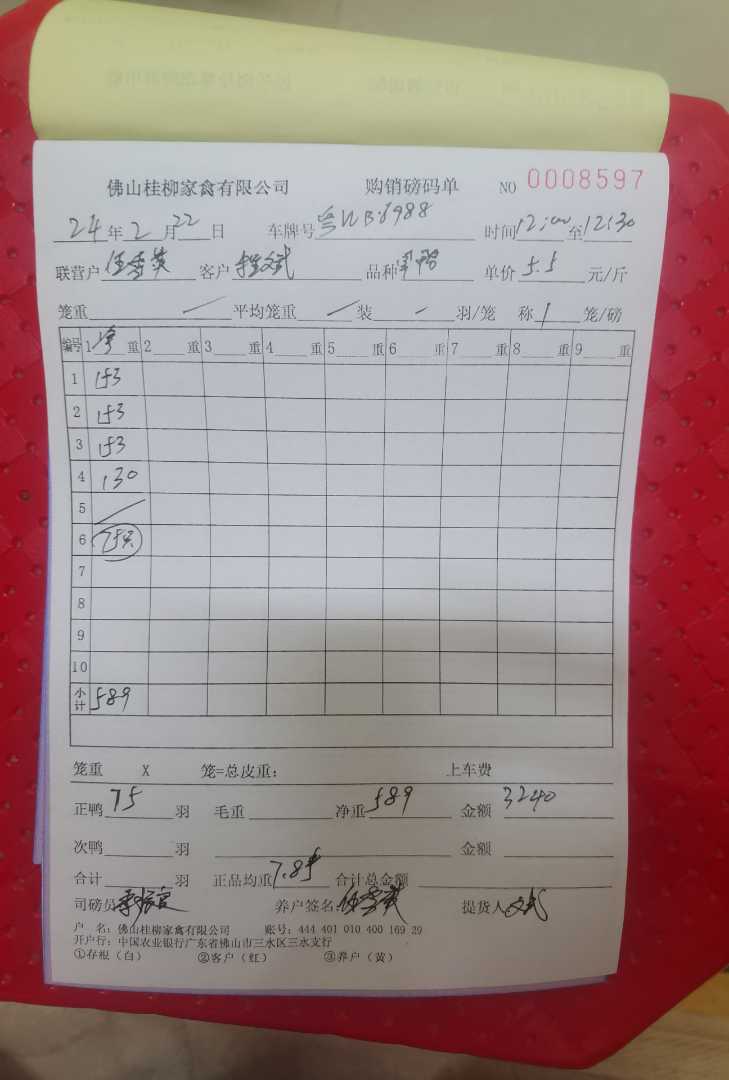 佛山桂柳家禽有限公司 购销磅码单 NO 0008597
24 年 2 月 22 日 车牌号 时间 12:00 至 12:30
联营户 伍雪英 客户 文武 品种 单价 5.5 元/斤
笼重 / 平均笼重 / 装 - 羽/笼 称 1 笼/磅
编号 1 净 重 2 重 3 重 4 重 5 重 6 重 7 重 8 重 9 重
1 153
2 153
3 153
4 130
5 /
6 75只
7
8
9
10
小计 589
笼重 X 笼=总皮重: 上车费
正鸭 75 羽 毛重 净重 589 金额 3240
次鸭 羽 金额
合计 羽 正品均重 7.85 合计总金额
司磅员 养户签名: 伍雪英 提货人 文武
户 名: 佛山桂柳家禽有限公司 账号: 444 401 010 400 169 29
开户行: 中国农业银行广东省佛山市三水区三水支行
①存根(白) ②客户(红) ③养户(黄)